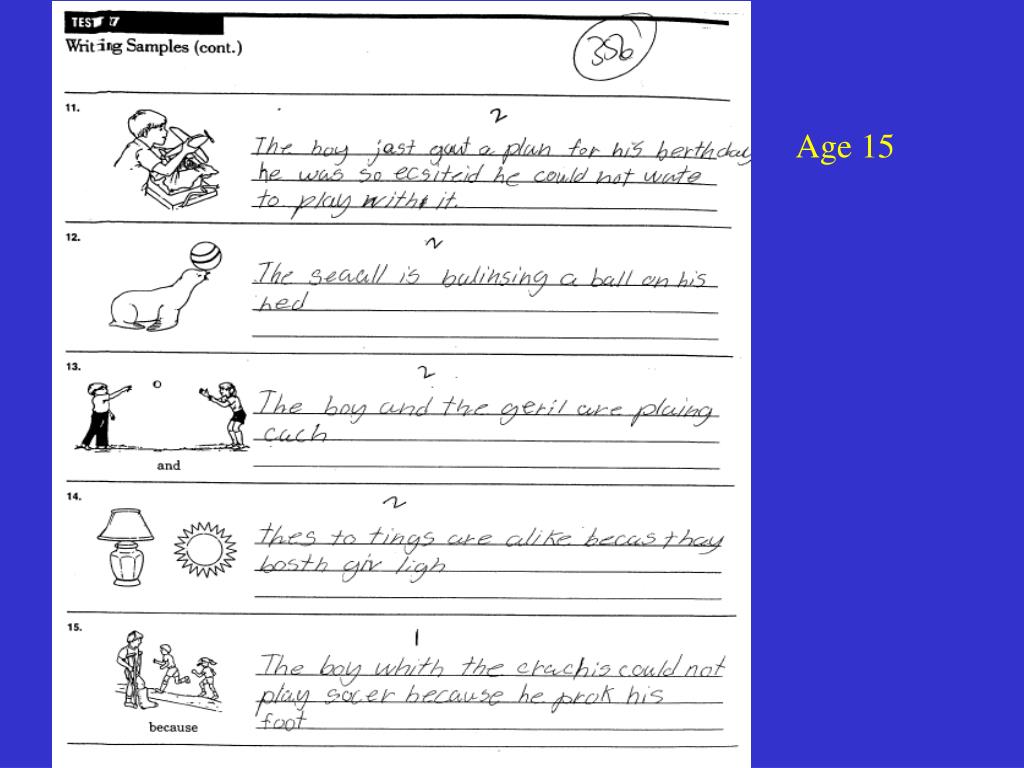 TEST 27
Writing Samples (cont.)
356
Age 15
11.
2
The boy jast gout a plan for his berthday
he was so ecsiteid he could not wate
to play with it.
12.
2
The seaall is balinsing a ball on his
hed
13.
2
The boy and the geril are plaing
cach
and
14.
2
thes to tings are alike becas thay
bosth giv ligh
15.
1
The boy whith the crachis could not
play socer because he prok his
foot
because